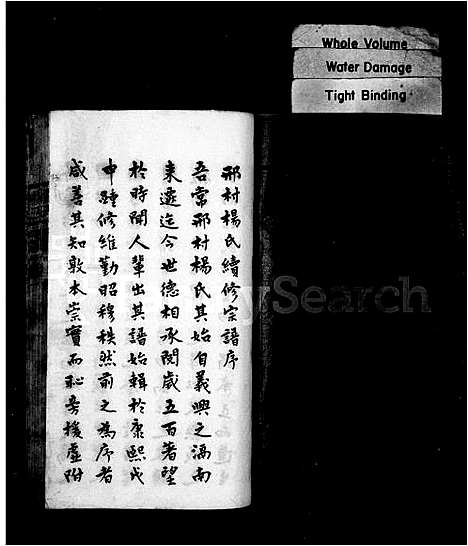 Whole Volume
Water Damage
Tight Binding
邢村楊氏續修宗譜序
吾常邢村楊氏其始自義興之滆南
來遷迄今世德相承閱歲五百著望
於時聞人輩出其譜始輯於康熙戊
申踵修維勤昭穆秩然前之為序者
咸善其知敦本崇實而恥旁援虛附